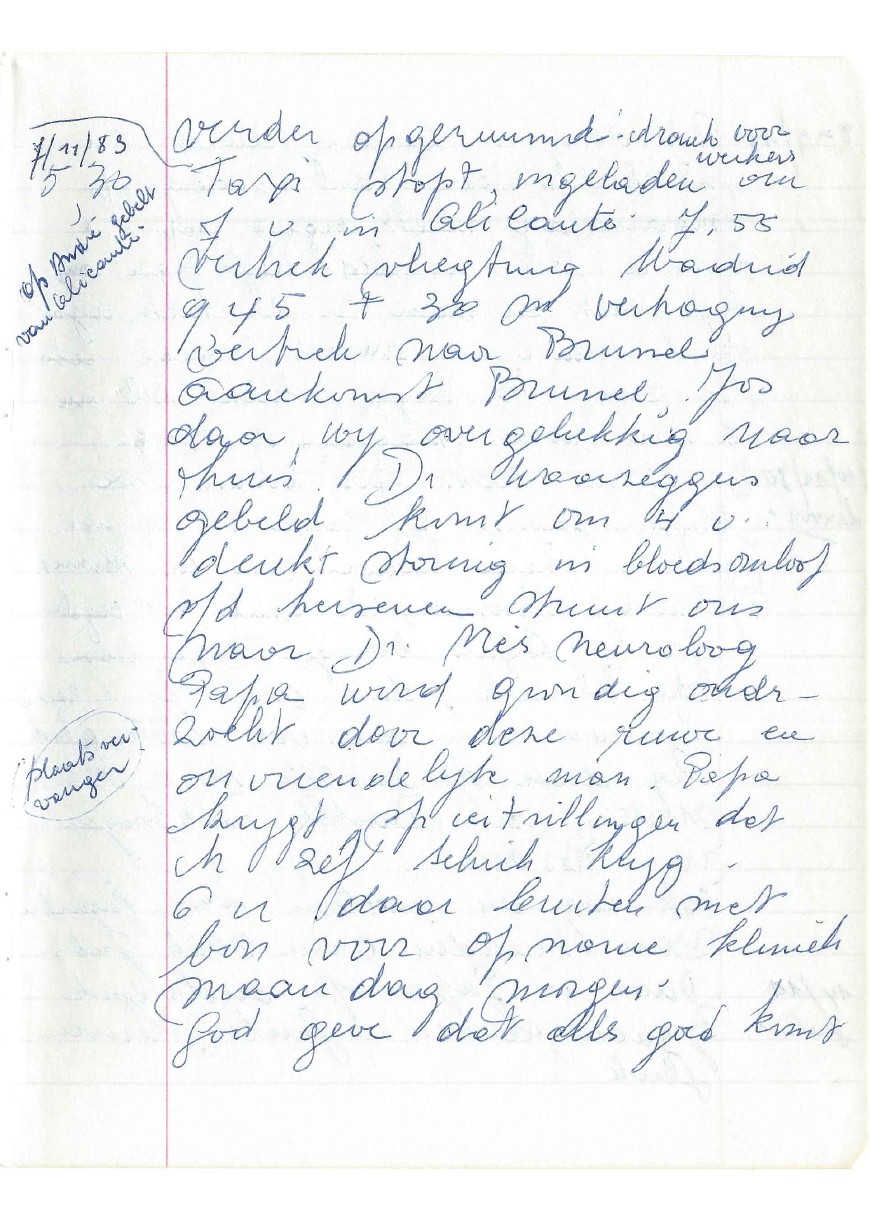 7/11/83
5 30
op André gebelt
van Alicante.
verder opgeruimd. drank voor
werkers
Taxi stopt, ingeladen om
7 u in Alicante. 7,55
Vertrek vliegtuig Madrid
9 45 + 30 m
Vertrek naar Brussel
aankomst Brussel. Jos
daar, wy overgelukkig naar
thuis. Dr.
gebeld komt om 4 u.
denkt storing in bloedsomloof
v/d hersenen stuurt ons
naar Dr. Mès neuroloog
Papa word grondig onder-
zocht door deze ruwe en
onvriendelyke man. Papa
krygt op trillingen dat
ik zelf schrik kryg.
plaatsver-
vanger
6 u daar buiten met
bon voor opname kliniek
maandag morgen.
God geve dat alls goed komt